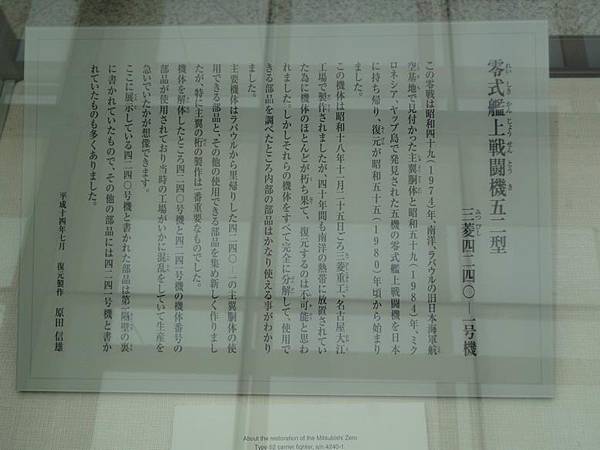 零式艦上戦闘機五二型
れい しき かん じょう せん とう き
三菱四二四〇―一号機
みつ びし
この零戦は昭和四十九(1974)年、南洋、ラバウルの旧日本海軍航
空基地で見付かった主翼胴体と昭和五十九(1984)年、ミク
ロネシア、ヤップ島で発見された五機の零式艦上戦闘機を日本
に持ち帰り、復元が昭和五十五(1980)年頃から始まり
ました。
この機体は昭和十八年十二月二十五日ごろ三菱重工、名古屋大江
工場で製作されましたが、四十年間も南洋の熱帯に放置されてい
た為に機体のほとんどが朽ち果て、復元するのは不可能と思わ
れました。しかしそれらの機体をすべて完全に分解して、使用で
きる部品を調べたところ内部の部品はかなり使える事がわかり
ました。
主要機体はラバウルから里帰りした四二四〇―一の主翼胴体の使
用できる部品と、その他の使用できる部品を集め新しく作りまし
たが、特に主翼の桁の製作は一番重要なものでした。
機体を解体したところ四二四〇号機と四二四一号機の機体番号の
部品が使用されており当時の工場がいかに混乱をしていて生産を
急いでいたかが想像できます。
ここに展示している四二四〇号機と書かれた部品は第一隔壁の裏
に書かれていたもので、その他の部品には四二四一号機と書か
れていたものも多くありました。
平成十四年七月 復元製作 原田信雄
About the restoration of the Mitsubishi Zero
Type 52 carrier fighter, s/n 4240-1